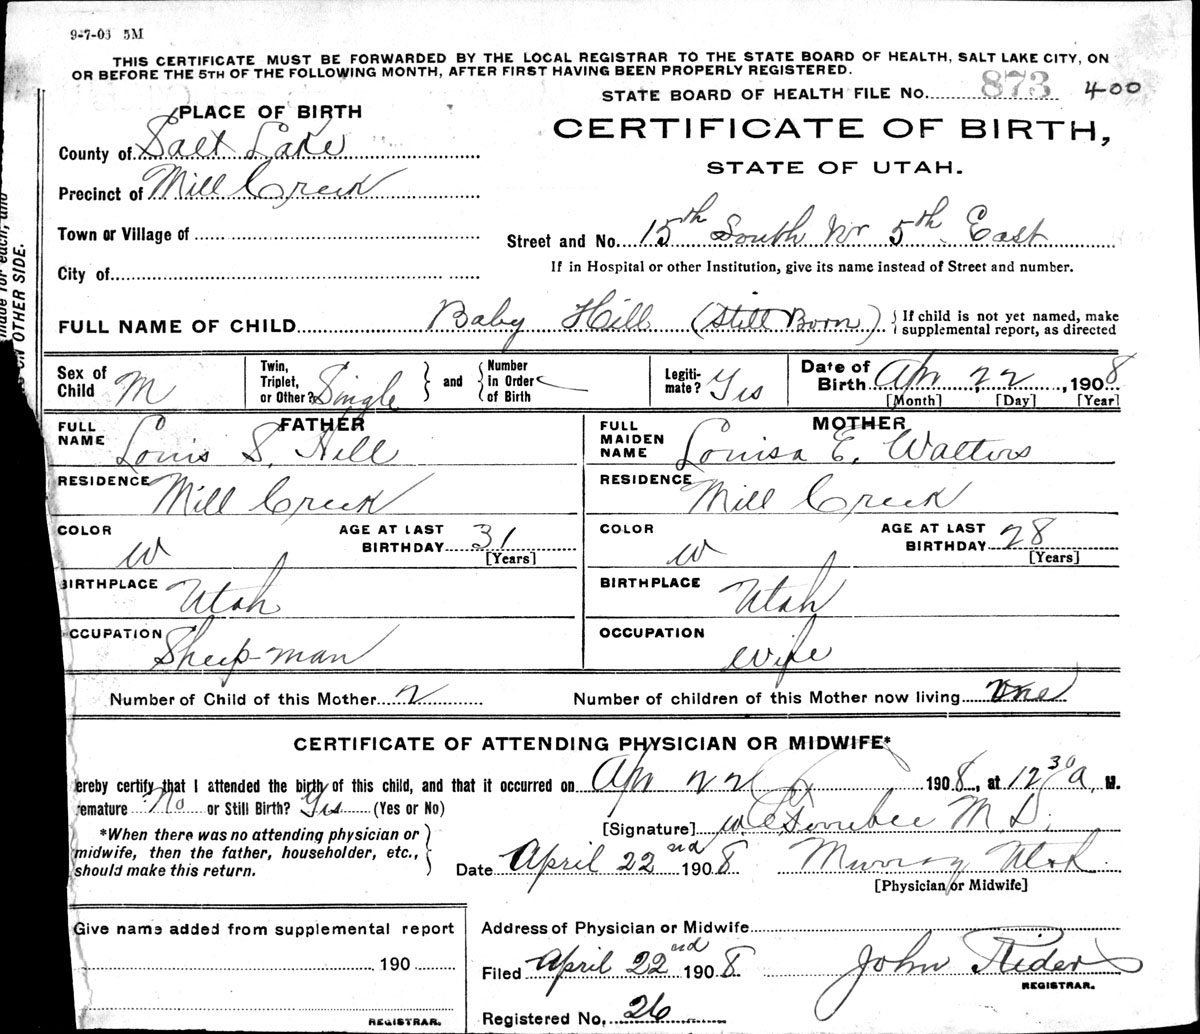 9-7-03 5M
THIS CERTIFICATE MUST BE FORWARDED BY THE LOCAL REGISTRAR TO THE STATE BOARD OF HEALTH, SALT LAKE CITY, ON
OR BEFORE THE 5TH OF THE FOLLOWING MONTH, AFTER FIRST HAVING BEEN PROPERLY REGISTERED.
STATE BOARD OF HEALTH FILE No. 873 400
PLACE OF BIRTH
CERTIFICATE OF BIRTH,
STATE OF UTAH.
County of Salt Lake
Precinct of Mill Creek
Town or Village of
Street and No. 15th South Nr 5th East
City of
If in Hospital or other Institution, give its name instead of Street and number.
FULL NAME OF CHILD Baby Hill (Still Born) If child is not yet named, make
supplemental report, as directed
made for each, and
ON OTHER SIDE.
Sex of Child M
Twin, Triplet, or Other? Single and Number in Order of Birth
Legiti-mate? Yes
Date of Birth Apr 22, 1908
[Month] [Day] [Year]
FATHER
FULL NAME Louis S. Hill
RESIDENCE Mill Creek
COLOR W AGE AT LAST BIRTHDAY 31
[Years]
BIRTHPLACE Utah
CCUPATION Sheep-man
MOTHER
FULL MAIDEN NAME Louisa E. Walters
RESIDENCE Mill Creek
COLOR W AGE AT LAST BIRTHDAY 28
[Years]
BIRTHPLACE Utah
OCCUPATION Wife
Number of Child of this Mother 2 Number of children of this Mother now living one
CERTIFICATE OF ATTENDING PHYSICIAN OR MIDWIFE*
ereby certify that I attended the birth of this child, and that it occurred on Apr 22 1908, at 12 30 a, M.
remature No or Still Birth? Yes (Yes or No)
*When there was no attending physician or
midwife, then the father, householder, etc.,
should make this return.
[Signature] M.D.
Date April 22nd 1908 Murray Utah
[Physician or Midwife]
Give name added from supplemental report
190
REGISTRAR.
Address of Physician or Midwife
Filed April 22nd 1908 John Rider
REGISTRAR.
Registered No. 26